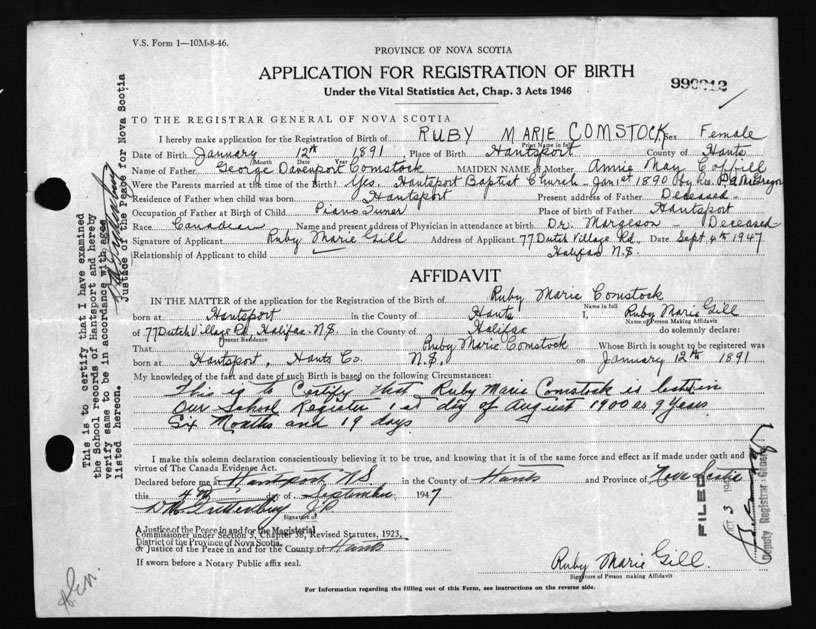 V.S. Form 1—10M-8-46.
PROVINCE OF NOVA SCOTIA
APPLICATION FOR REGISTRATION OF BIRTH
Under the Vital Statistics Act, Chap. 3 Acts 1946
TO THE REGISTRAR GENERAL OF NOVA SCOTIA
I hereby make application for the Registration of Birth of RUBY MARIE COMSTOCK Sex Female
Print Name in full
Date of Birth January 12th 1891 Place of Birth Hantsport County of Hants
Month Date Year
Name of Father George Davenport Comstock MAIDEN NAME of Mother Annie May
Were the Parents married at the time of the Birth? Yes. Hantsport Baptist Church - Jan 1st 1890 (by Rev.
Residence of Father when child was born Hantsport Present address of Father Deceased -
Occupation of Father at Birth of Child Piano Tuner Place of birth of Father Hantsport
Race Canadian Name and present address of Physician in attendance at birth Dr. Margeson - Deceased
Signature of Applicant Ruby Marie Gill Address of Applicant 77 Dutch Village Rd. Date Sept. 4th 1947
Relationship of Applicant to child Halifax N.S.
AFFIDAVIT
IN THE MATTER of the application for the Registration of the Birth of Ruby Marie Comstock
Name in full
born at Hantsport in the County of Hants I, Ruby Marie Gill
Name of Person Making Affidavit
of 77 Dutch Village Rd, Halifax N.S. in the County of Halifax do solemnly declare:
Present Residence
That Ruby Marie Comstock Whose Birth is sought to be registered was
born at Hantsport, Hants Co. N.S. on January 12th 1891
My knowledge of the fact and date of such Birth is based on the following Circumstances:
This is to Certify that Ruby Marie Comstock is listed in
Our School Register 1st day of August 1900 as 9 years
Six Months and 19 days
I make this solemn declaration conscientiously believing it to be true, and knowing that it is of the same force and effect as if made under oath and
virtue of The Canada Evidence Act.
Declared before me at Hantsport N.S in the County of Hants and Province of Nova Scotia
this 4th day of September 1947
J.P.
Signature of
A Justice of the Peace in and for the Magisterial
Commissioner under Section 3, Chapter 38, Revised Statutes, 1923,
District of the Province of Nova Scotia.
or Justice of the Peace in and for the County of Hants
If sworn before a Notary Public affix seal.
Ruby Marie Gill.
Signature of Person making Affidavit
For Information regarding the filling out of this Form, see instructions on the reverse side.
This is to certify that I have examined
the School records of Hantsport and hereby
verify same to be in accordance with ages
listed hereon.
Justice of the Peace for Nova Scotia
FILED
Deputy Registrar General